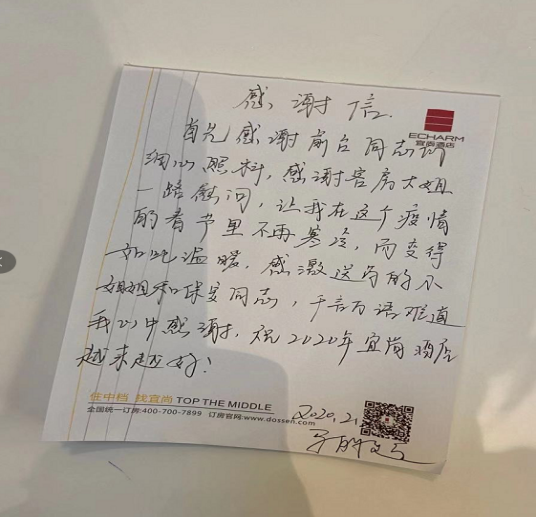 感谢信
ECHARM
宜尚酒店
首先感谢前台同志们
细心照料,感谢客房大姐
一路慰问,让我在这个疫情
的春节里不再寒冷,而变得
如此温暖,感激送餐的小
姐姐和保安同志,千言万语难道
我心中感谢,祝2020年宜尚酒店
越来越好!
住中档 找宜尚 TOP THE MIDDLE
全国统一订房:400-700-7899 订房官网:www.dossen.com
2020.2.